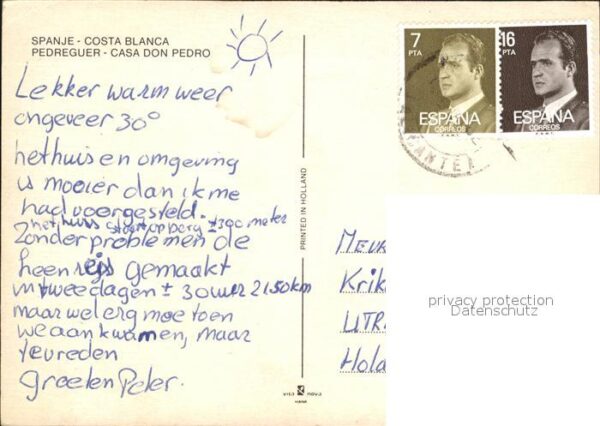 SPANJE - COSTA BLANCA
PEDREGUER - CASA DON PEDRO
Lekker warm weer
ongeveer 30°
het huis en omgeving
is mooier dan ik me
had voorgesteld.
het huis staat op berg ± 300 meter
Zonder problemen de
heenreis gemaakt
in twee dagen ± 30 uur 2150km
maar wel erg moe toen
we aankwamen, maar
tevreden
groeten Peter.
PRINTED IN HOLLAND
7
PTA
ESPAÑA
CORREOS
16
PTA
ESPAÑA
CORREOS
MEVR
Krik
UTR
Hola
privacy protection
Datenschutz